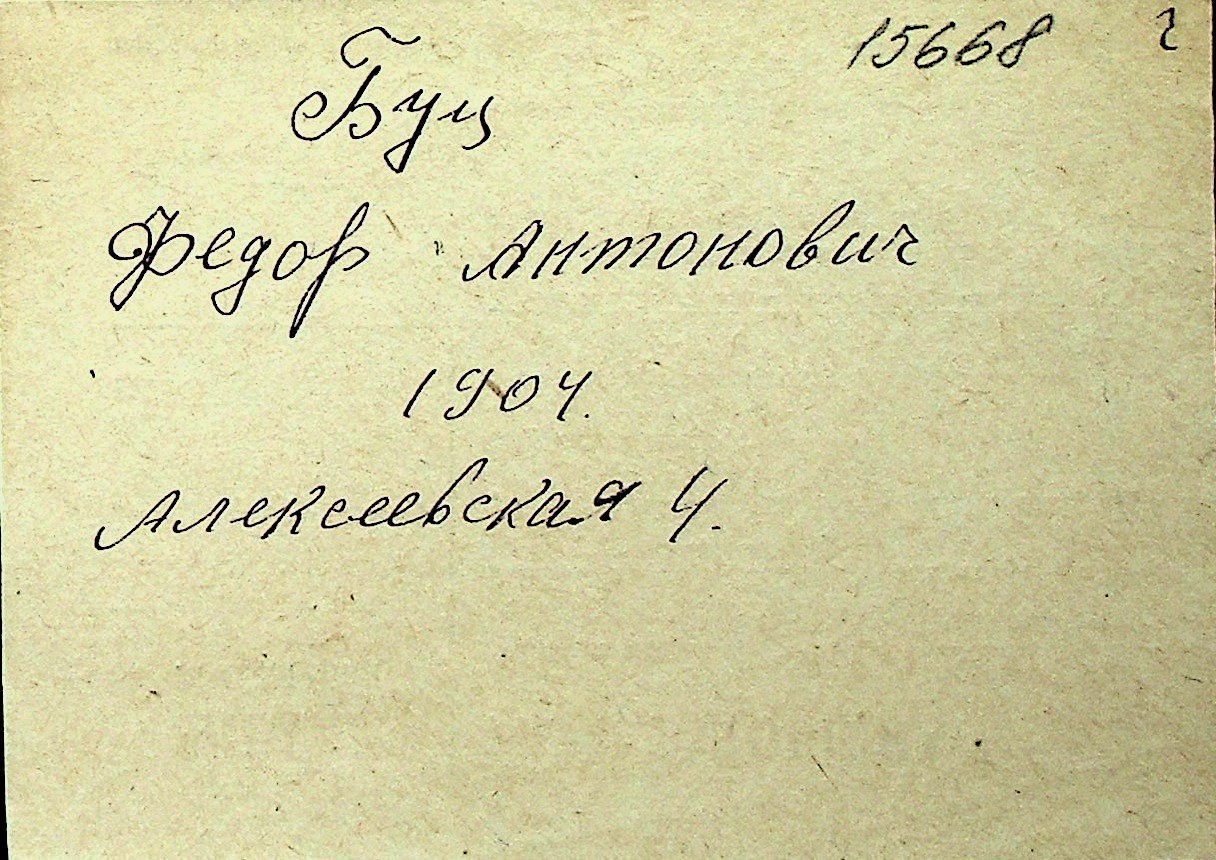 15668 г
Буц
Федор Антонович
1904.
Алексеевская 4.